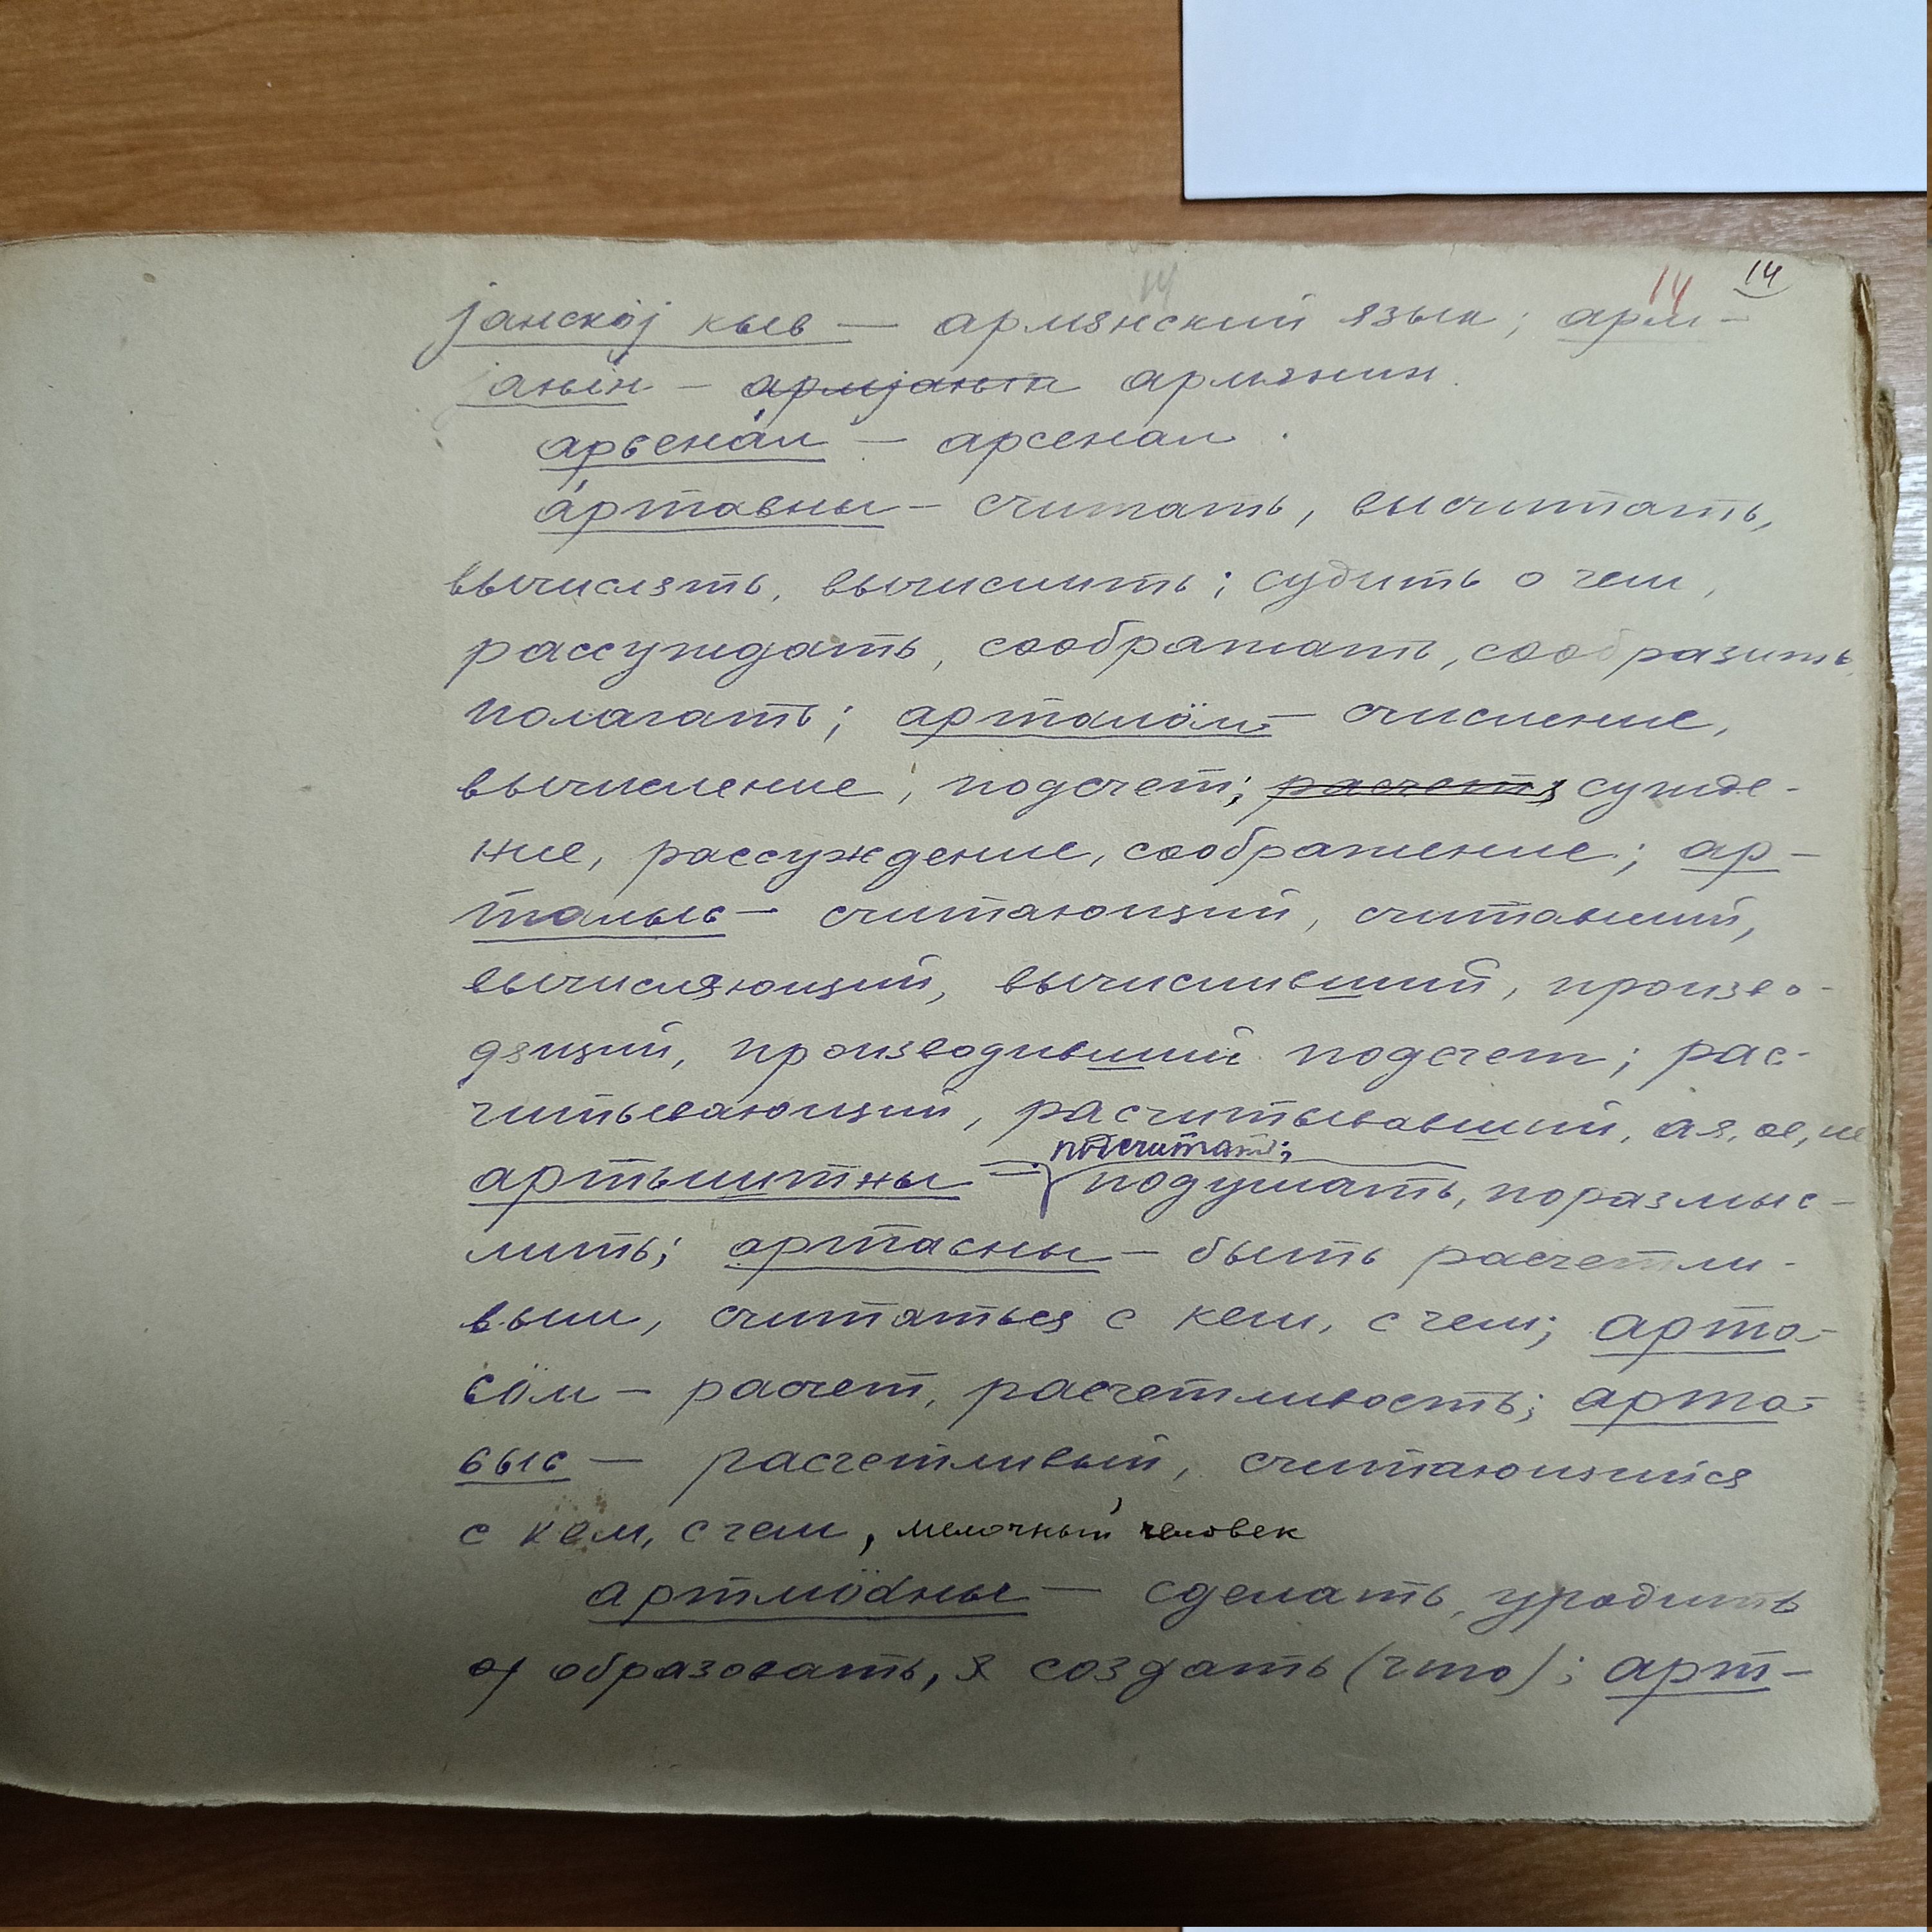 14 14 14
јанскöј кыв — армянский язык; арм-
јањін — армјањін армянин.
арвена́л — арсенал.
а́ртавны — считать, высчитать,
вычислять, вычислить; судить о чем,
рассуждать, соображать, сообразить,
полагать; арталöм — счисление,
вычисление, подсчет; расчет; сужде-
ние, рассуждение, соображение; ар-
талыс — считающий, считавший,
вычисляющий, вычисливший, произво-
дящий, производивший подсчет; рас-
читывающий, расчитывавший, ая, ое, ие
посчитать;
артыштны — подумать, поразмыс-
лить; артасны — быть расчетли-
вым, считаться с кем, с чем; арта-
сöм — расчет, расчетливость; арта-
выс — расчетливый, считающийся
с кем, с чем, мелочный человек
артмödны — сделать, уродить
образовать, создать (что); арт-